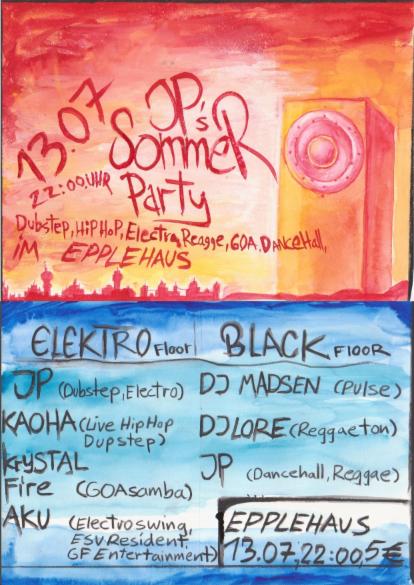 13.07
22:00 UHR
JP's
Sommer
Party
Dubstep, HipHoP, Electro, Reagge, GOA, DanceHall,
iM EPPLEHAUS
ELEKTRO Floor
JP (Dubstep, Electro)
KAOHA (Live HipHop
Dupstep)
KrYSTAL
Fire (GOAsamba)
AKU (Electroswing,
ESV Resident,
GF Entertainment)
BLACK FlOOR
DJ MADSEN (Pulse)
DJ LORE (Reggaeton)
JP (Dancehall, Reggae)
EPPLEHAUS
13.07, 22:00, 5€